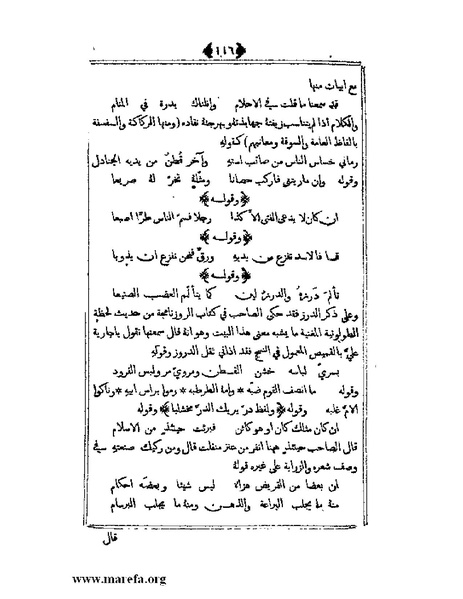 ﴿١١٦﴾
مع ابيات منها
قد سمعنا ما قلت في الاحلام وانلناك بدرة في المنام
والكلام اذا لم يتناسب زيفته جهابذته وبهرجته نقاده (ومنها الركاكة والسفسفة
بالفاظ العامة والسوقة ومعانيهم) كقوله
رماني خساس الناس من صائب استه وآخر قطن من يديه الجنادل
وقوله وان ماريتني فاركب حصانا ومثله تخر له صريعا
﴿وقوله﴾
ان كان لا يدعى الفتى الا كذا رجلا فسم الناس طرا اصبعا
﴿وقوله﴾
قسا فالاسد تفزع من يديه ورق فنحن نفزع ان يذوبا
﴿وقوله﴾
تألم درزه والدرز لين كما يتألم العضب الصنيعا
وعلى ذكر الدرز فقد حكى الصاحب في كتاب الروزنامجة من حديث لحظة
الطولونية المغنية ما يشبه معنى هذا البيت وهو انه قال سمعتها تقول يا جارية
علي بالقميص المعمول في النسج فقد اذاني ثقل الدروز وقوله
بسري لباسه خشن القطن ومروي مرو لبس القرود
وقوله ما انصف القوم ضبه * وامه الطرطبه * رموا براس ابيه * وناكوا
الام غلبه وقوله ﴿ولفظ در يريك الدر مخشلبا﴾ وقوله
ان كان مثلك كان او هو كائن فبرئت حينئذ من الاسلام
قال الصاحب حينئذ ههنا انفر من عنز منفلت قال ومن ركيك صنعته في
وصف شعره والزراية على غيره قوله
ان بعضا من القريض هراء ليس شيئا وبعضه احكام
منه ما يجلب البراعة والذهن ومنه ما يجلب البرسام
قال
www.marefa.org